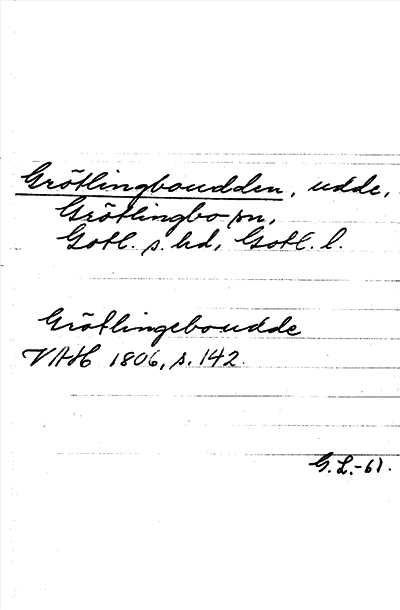 Grötlingboudden, udde,
Grötlingbo sn,
Gotl. s. hd, Gotl. l.
Grötlingeboudde
VAH 1806, s. 142.
G. L. -61.